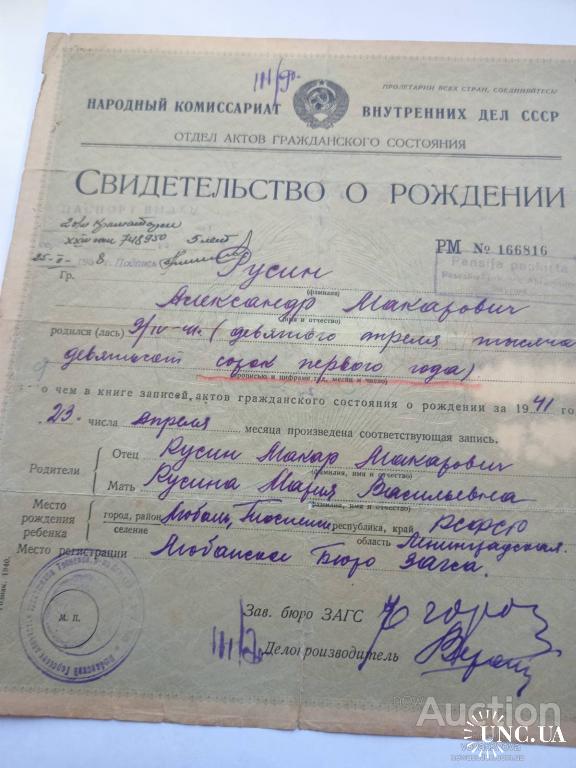 III/90.
ПРОЛЕТАРИИ ВСЕХ СТРАН, СОЕДИНЯЙТЕСЬ!
НАРОДНЫЙ КОМИССАРИАТ ВНУТРЕННИХ ДЕЛ СССР
ОТДЕЛ АКТОВ ГРАЖДАНСКОГО СОСТОЯНИЯ
СВИДЕТЕЛЬСТВО О РОЖДЕНИИ
748950 5 лет
РМ № 166816
25-V- 1958 г. Подпись
Pensija
Гр. Русин
(фамилия)
Александр Макарович
(имя и отчество)
родился (лась) 9/IV-41. (девятого апреля тысяча
девятьсот сорок первого года)
(прописью и цифрами год, месяц и число)
о чем в книге записей актов гражданского состояния о рождении за 1941 го
23 числа апреля месяца произведена соответствующая запись.
Родители
Отец Русин Макар Макарович
(фамилия, имя и отчество)
Мать Русина Мария Васильевна
(фамилия, имя и отчество)
Место рождения ребенка
город, район Любань, Тосненск республика, край РСФСР
селение область Ленинградская
Место регистрации Любанское Бюро Загса.
Гознак. 1940.
М. П.
Зав. бюро ЗАГС
Делопроизводитель
Auction
UNC.UA